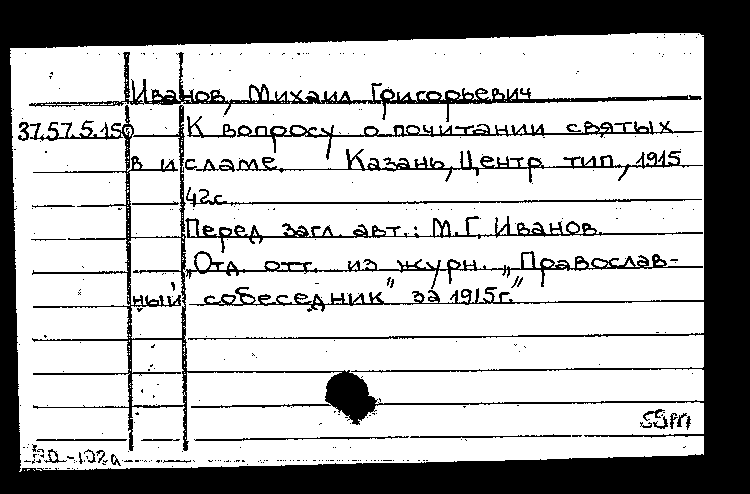 Иванов, Михаил Григорьевич
37.57.5.150 К вопросу о почитании святых
в исламе. Казань, Центр. тип., 1915
42с.
Перед загл. авт.: М.Г. Иванов.
„Отд. отт. из журн. „Православ-
ный собеседник" за 1915г."